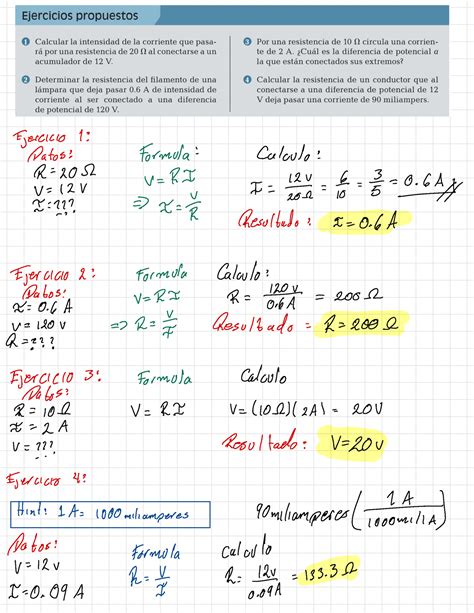 Ejercicios propuestos
1 Calcular la intensidad de la corriente que pasa-
rá por una resistencia de 20 Ω al conectarse a un
acumulador de 12 V.
2 Determinar la resistencia del filamento de una
lámpara que deja pasar 0.6 A de intensidad de
corriente al ser conectado a una diferencia
de potencial de 120 V.
3 Por una resistencia de 10 Ω circula una corrien-
te de 2 A. ¿Cuál es la diferencia de potencial a
la que están conectados sus extremos?
4 Calcular la resistencia de un conductor que al
conectarse a una diferencia de potencial de 12
V deja pasar una corriente de 90 miliampers.
Ejercicio 1:
Datos:
R = 20 Ω
V = 12 V
I = ???
Formula:
V = R I
=> I = V/R
Calculo:
I = 12 V/20 Ω = 6/10 = 3/5 = 0.6 A
Resultado: I = 0.6 A
Ejercicio 2:
Datos:
I = 0.6 A
V = 120 V
R = ???
Formula
V = R I
=> R = V/I
Calculo:
R = 120 V/0.6 A = 200 Ω
Resultado = R = 200 Ω
Ejercicio 3:
Datos:
R = 10 Ω
I = 2 A
V = ???
Formula
V = R I
Calculo
V = (10 Ω)(2A) = 20 V
Resultado: V = 20 V
Ejercicio 4:
Hint: 1 A = 1000 miliamperes
90 miliamperes (1 A/1000 mili A)
Datos:
V = 12 V
I = 0.09 A
Formula
R = V/I
Calculo
R = 12 V/0.09 A = 133.3 Ω